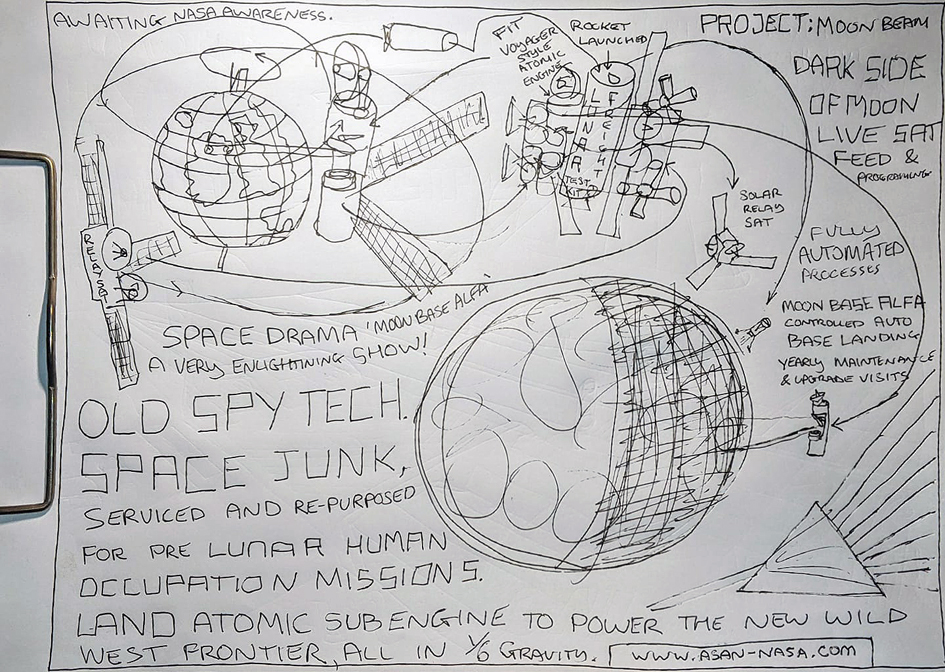 AWAITING NASA AWARENESS.
PROJECT: MOON BEAM
FIT
VOYAGER
STYLE
ATOMIC
ENGINE
ROCKET
LAUNCHED
LUNAR
FREIGHT
TEST
KIT
DARK SIDE
OF MOON
LIVE SAT
FEED &
PROGRAMING
SOLAR
RELAY
SAT
RELAY SAT
FULLY
AUTOMATED
PROCESSES
MOON BASE ALFA
CONTROLLED AUTO
BASE LANDING
YEARLY MAINTENANCE
& UPGRADE VISITS
SPACE DRAMA 'MOON BASE ALFA'
A VERY ENLIGHTNING SHOW!
OLD SPY TECH.
SPACE JUNK,
SERVICED AND RE-PURPOSED
FOR PRE LUNAR HUMAN
OCCUPATION MISSIONS.
LAND ATOMIC SUB ENGINE TO POWER THE NEW WILD
WEST FRONTIER, ALL IN 1/6 GRAVITY.
WWW.ASAN-NASA.COM